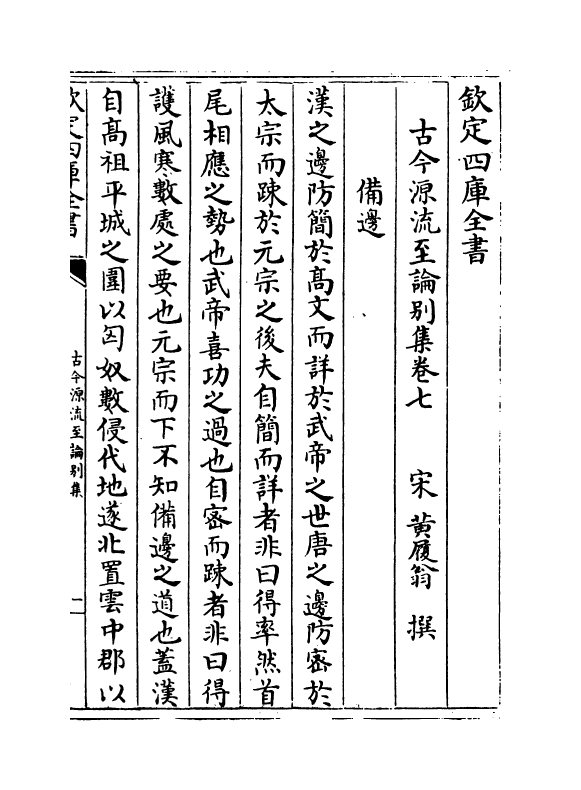 欽定四庫全書
古今源流至論别集卷七　宋　黃履翁　撰
備邊
漢之邊防簡於髙文而詳於武帝之世唐之邊防宻於
太宗而踈於元宗之後夫自簡而詳者非曰得率然首
尾相應之勢也武帝喜功之過也自宻而踈者非曰得
護風寒數處之要也元宗而下不知備邊之道也蓋漢
自髙祖平城之圍以匈奴數侵代地遂北置雲中郡以
欽定四庫全書
古今源流至論别集
二